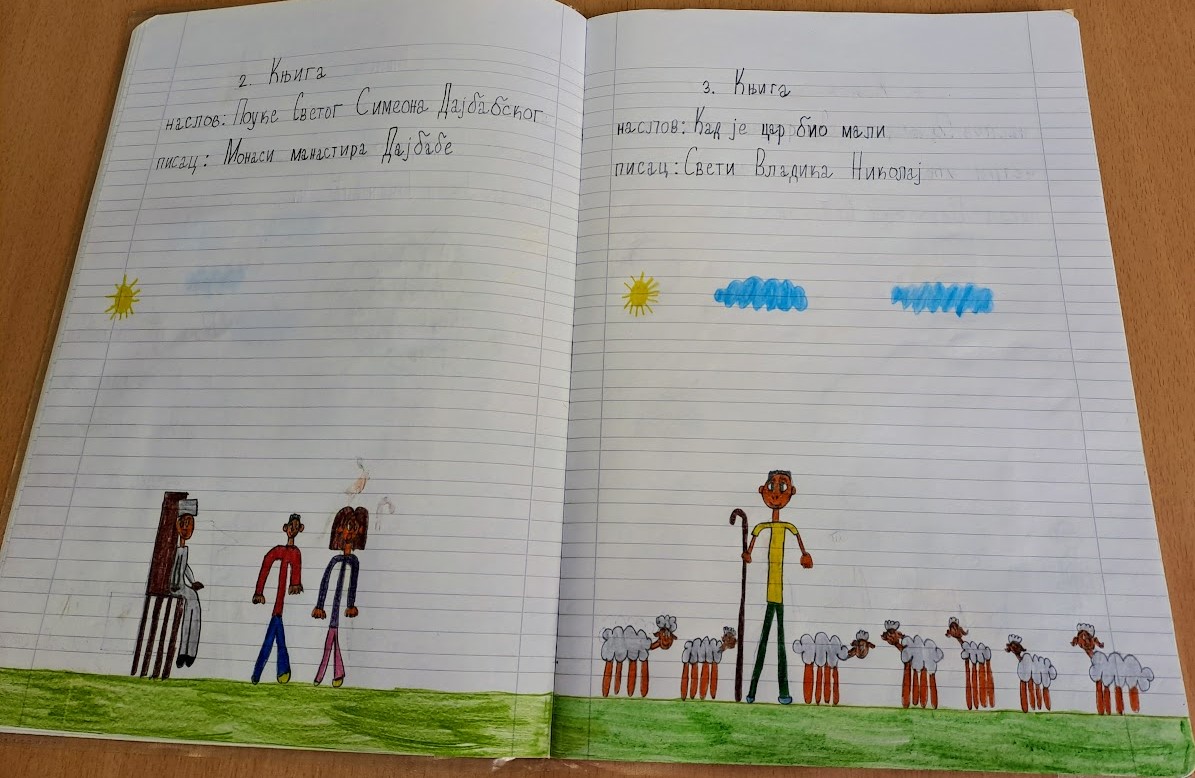 2. Књига
наслов: Поуке Светог Симеона Дајбабског
писац: Монаси манастира Дајбабе
3. Књига
наслов: Кад је цар био мали
писац: Свети Владика Николај